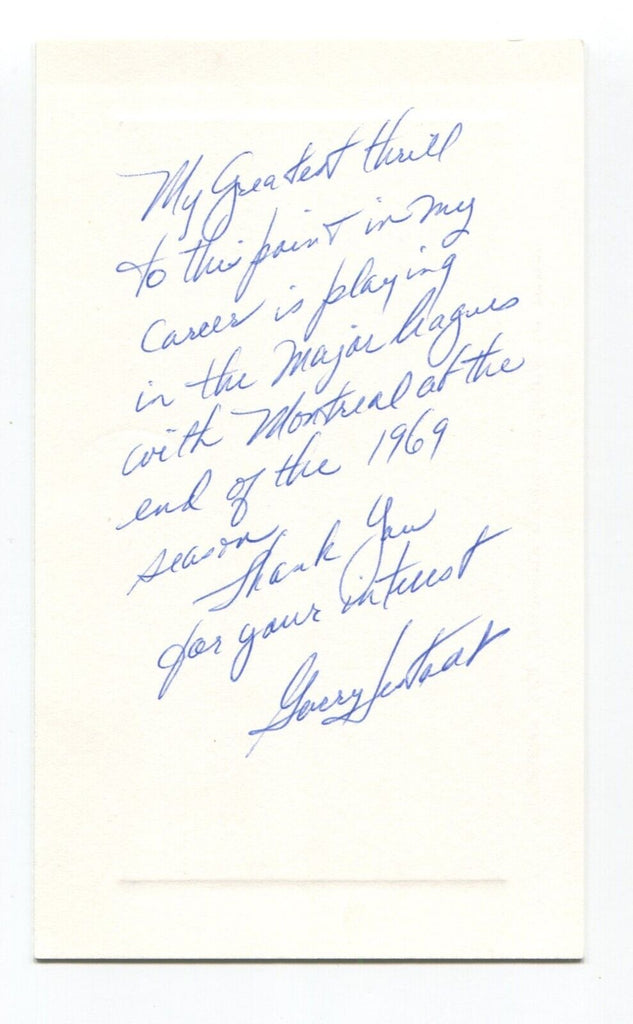 My Greatest thrill
to this point in my
career is playing
in the Major leagues
with Montreal at the
end of the 1969
season
Thank You
for your interest
Garry Jestadt